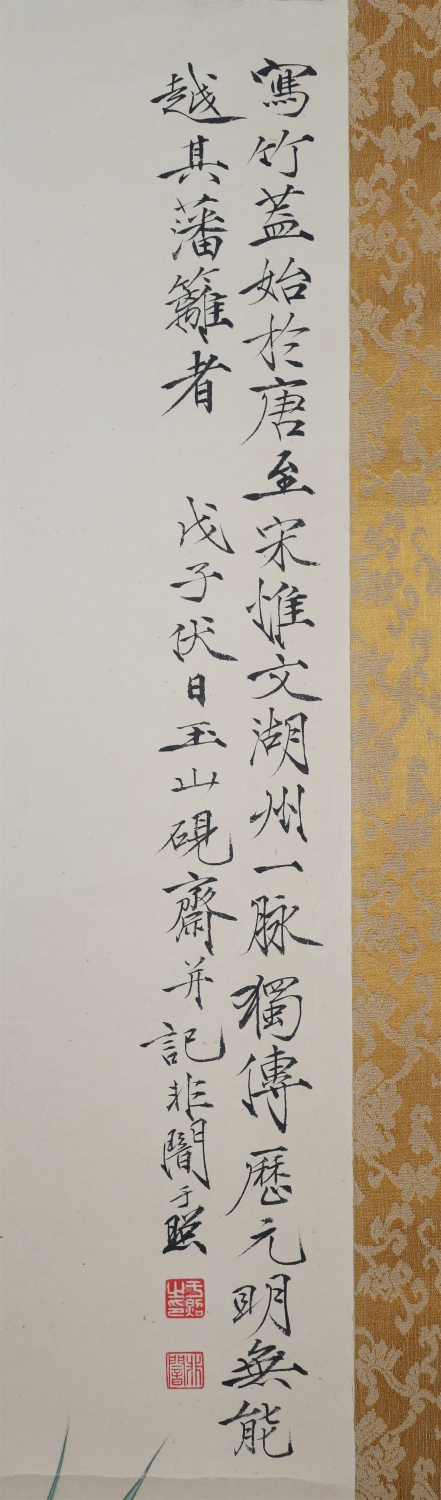 寫竹蓋始於唐至宋惟文湖州一脉獨傳歷元明無能
越其藩籬者 戊子伏日玉山硯齋并記非闇于照
于照之印
非闇